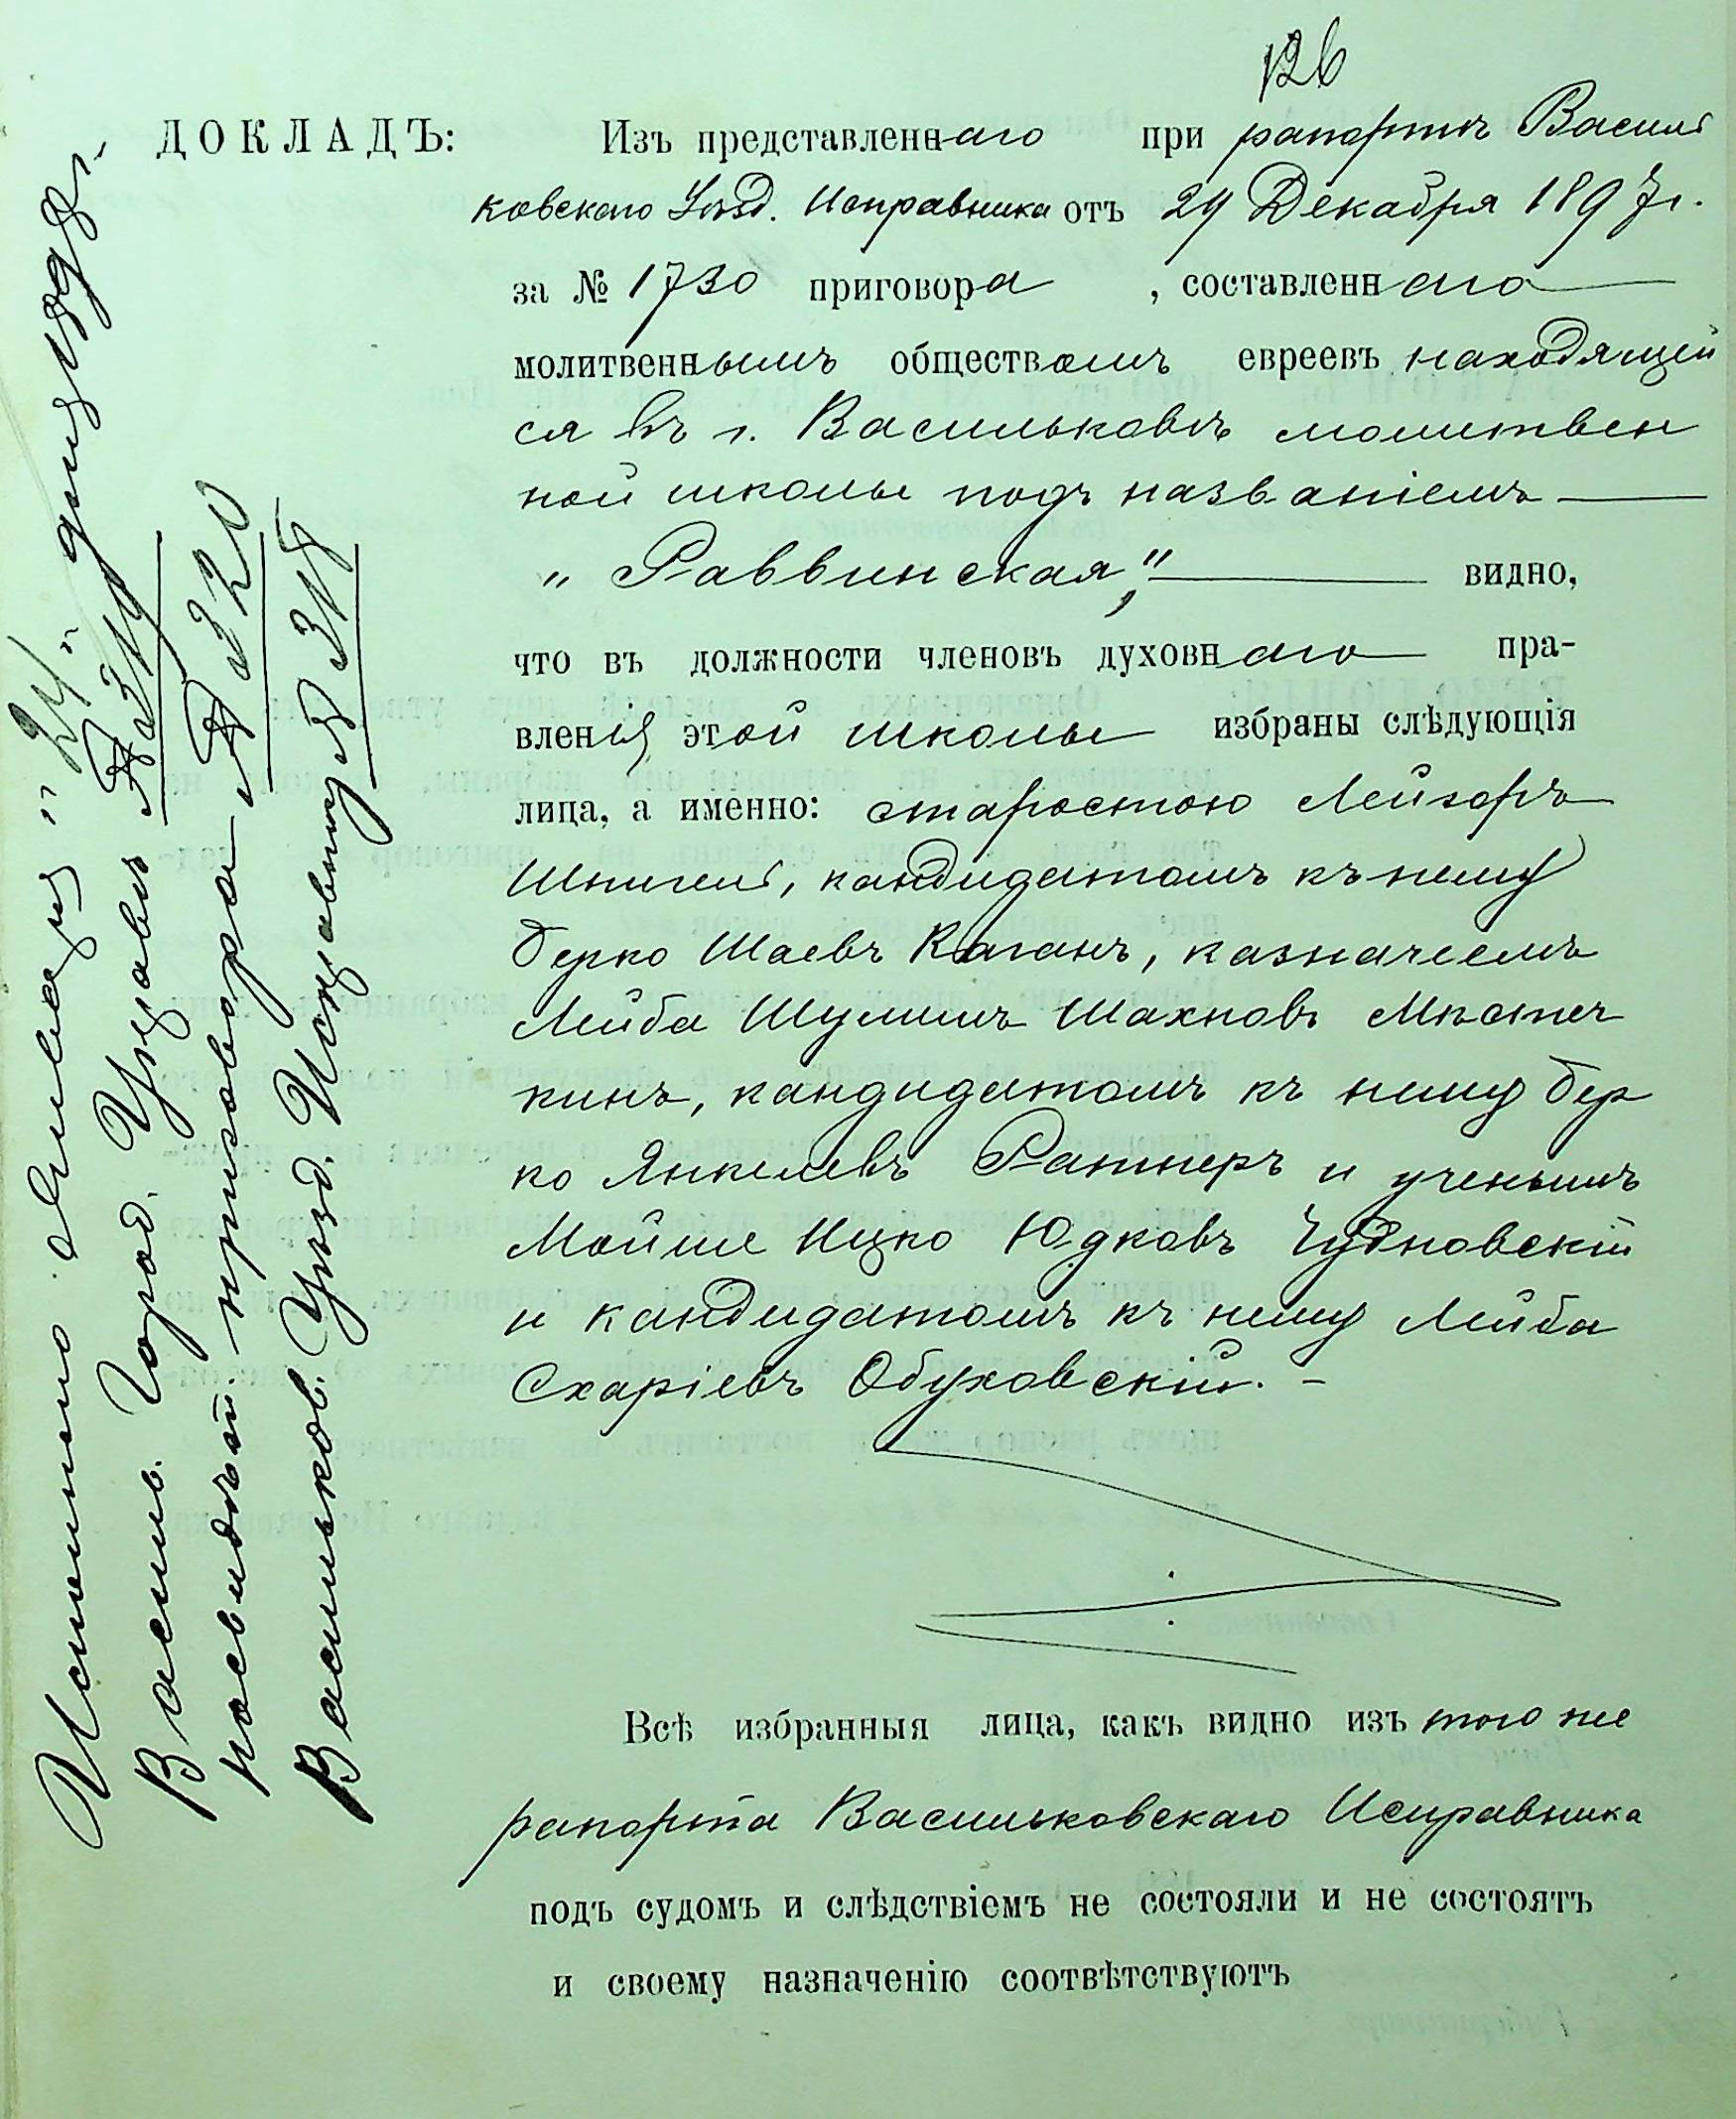 126
ДОКЛАДЪ: Изъ представленнаго при рапортѣ Василь
ковскаго Уѣзд. Исправника отъ 29 Декабря 1897 г.
за № 1730 приговора, составленнаго
молитвеннымъ обществомъ евреевъ находящей
ся въ г. Васильковѣ молитвен
ной школы подъ названіемъ
„Раввинская," видно,
что въ должности членовъ духовнаго пра-
вленія этой школы избраны слѣдующія
лица, а именно: старостою Лейзоръ
Шпигель, кандидатомъ къ нему
Берко Шаевъ Каганъ, казначеемъ
Лейба Шулимъ Шахновъ Мѣстеч
кинъ, кандидатомъ къ нему Бер
ко Янкелевъ Ратнеръ и ученымъ
Мойше Ицко Юдковъ Чудновскій
и кандидатомъ къ нему Лейба
Схаріевъ Обуховскій. –
Всѣ избранныя лица, какъ видно изъ того же
рапорта Васильковскаго Исправника
подъ судомъ и слѣдствіемъ не состояли и не состоятъ
и своему назначенію соотвѣтствуютъ
Исполнено "24"
Васильк. Город. Управѣ № 319
раввинъ приговора № 320
Васильков. Уѣзд. Исправнику № 318